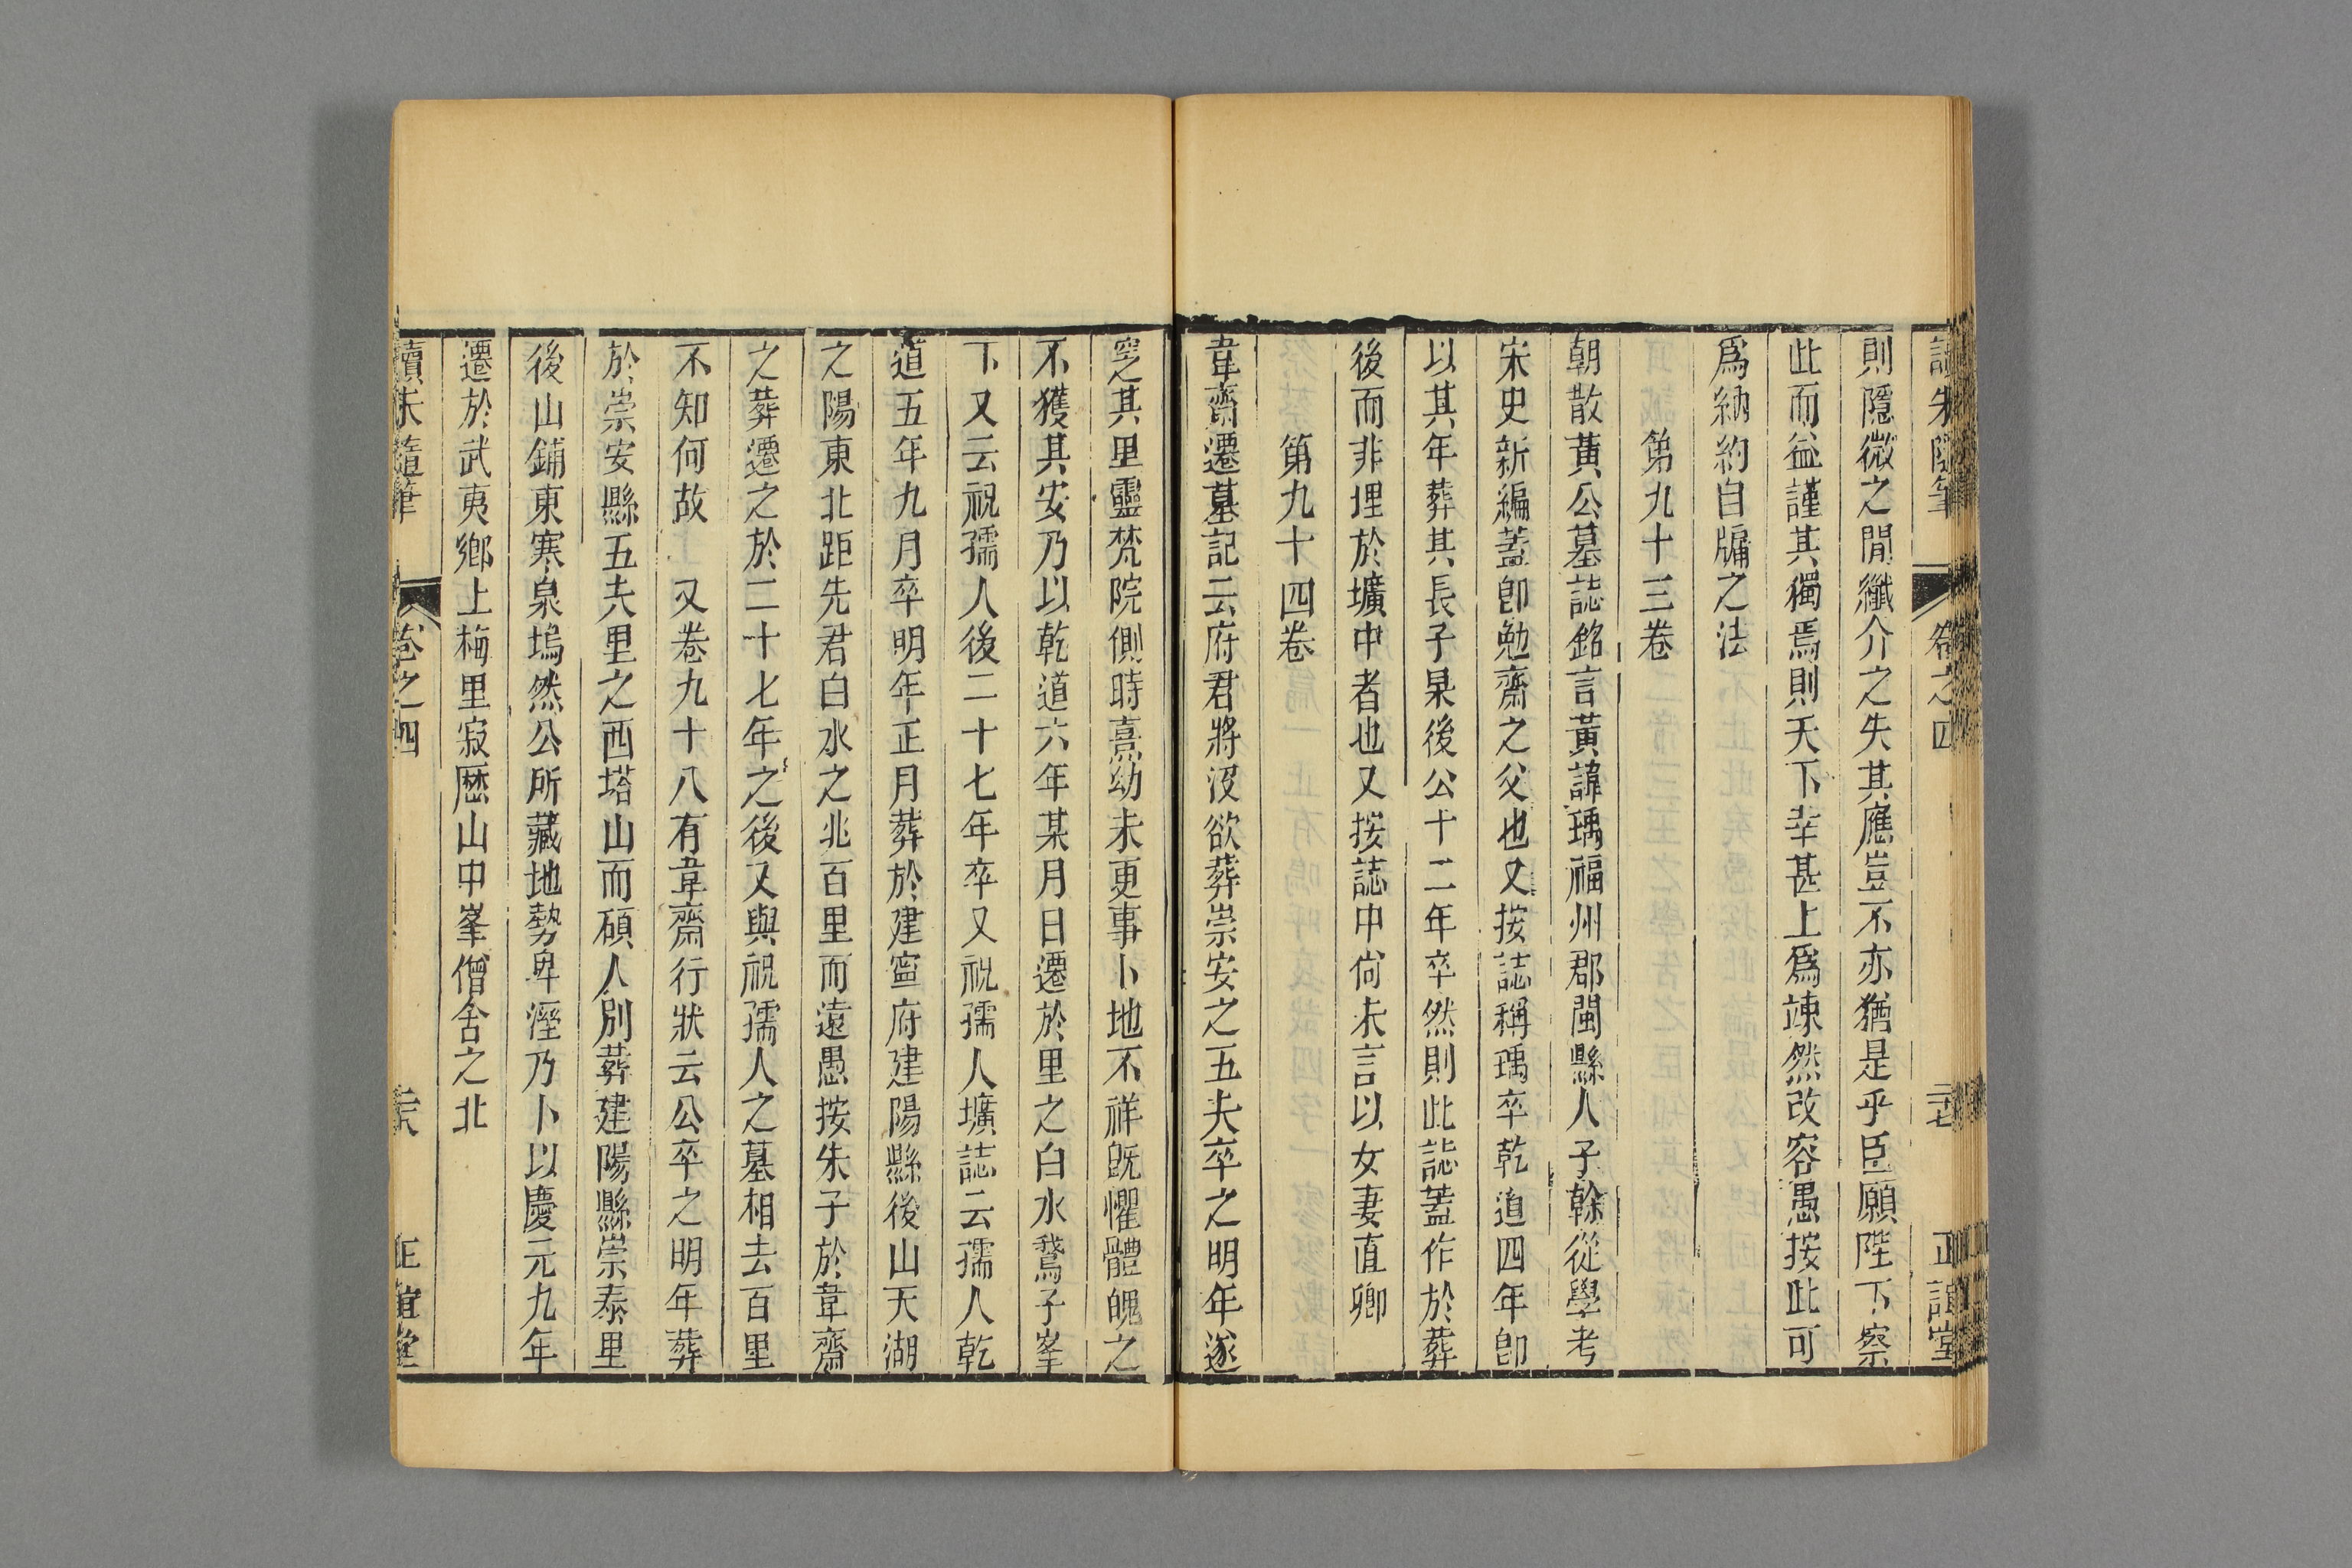 讀朱隨筆 卷之四 二十七 正誼堂
則隱微之閒纖介之失其應豈不亦猶是乎臣願陛下察
此而益謹其獨焉則天下幸甚上爲竦然改容愚按此可
爲納約自牖之法
第九十三卷
朝散黃公墓誌銘言黃諱瑀福州郡閩縣人子榦從學考
宋史新編蓋卽勉齋之父也又按誌稱瑀卒乾道四年卽
以其年葬其長子杲後公十二年卒然則此誌蓋作於葬
後而非埋於壙中者也又按誌中尙未言以女妻直卿
第九十四卷
韋齋遷墓記云府君將沒欲葬崇安之五夫卒之明年遂
窆其里靈梵院側時熹幼未更事卜地不祥旣懼體魄之
不獲其安乃以乾道六年某月日遷於里之白水鵞子峯
下又云祝孺人後二十七年卒又祝孺人壙誌云孺人乾
道五年九月卒明年正月葬於建寧府建陽縣後山天湖
之陽東北距先君白水之兆百里而遠愚按朱子於韋齋
之葬遷之於二十七年之後又與祝孺人之墓相去百里
不知何故 又卷九十八有韋齋行狀云公卒之明年葬
於崇安縣五夫里之西塔山而碩人別葬建陽縣崇泰里
後山鋪東寒泉塢然公所藏地勢卑溼乃卜以慶元九年
遷於武夷鄉上梅里寂歷山中峯僧舍之北
讀朱隨筆 卷之四 正誼堂